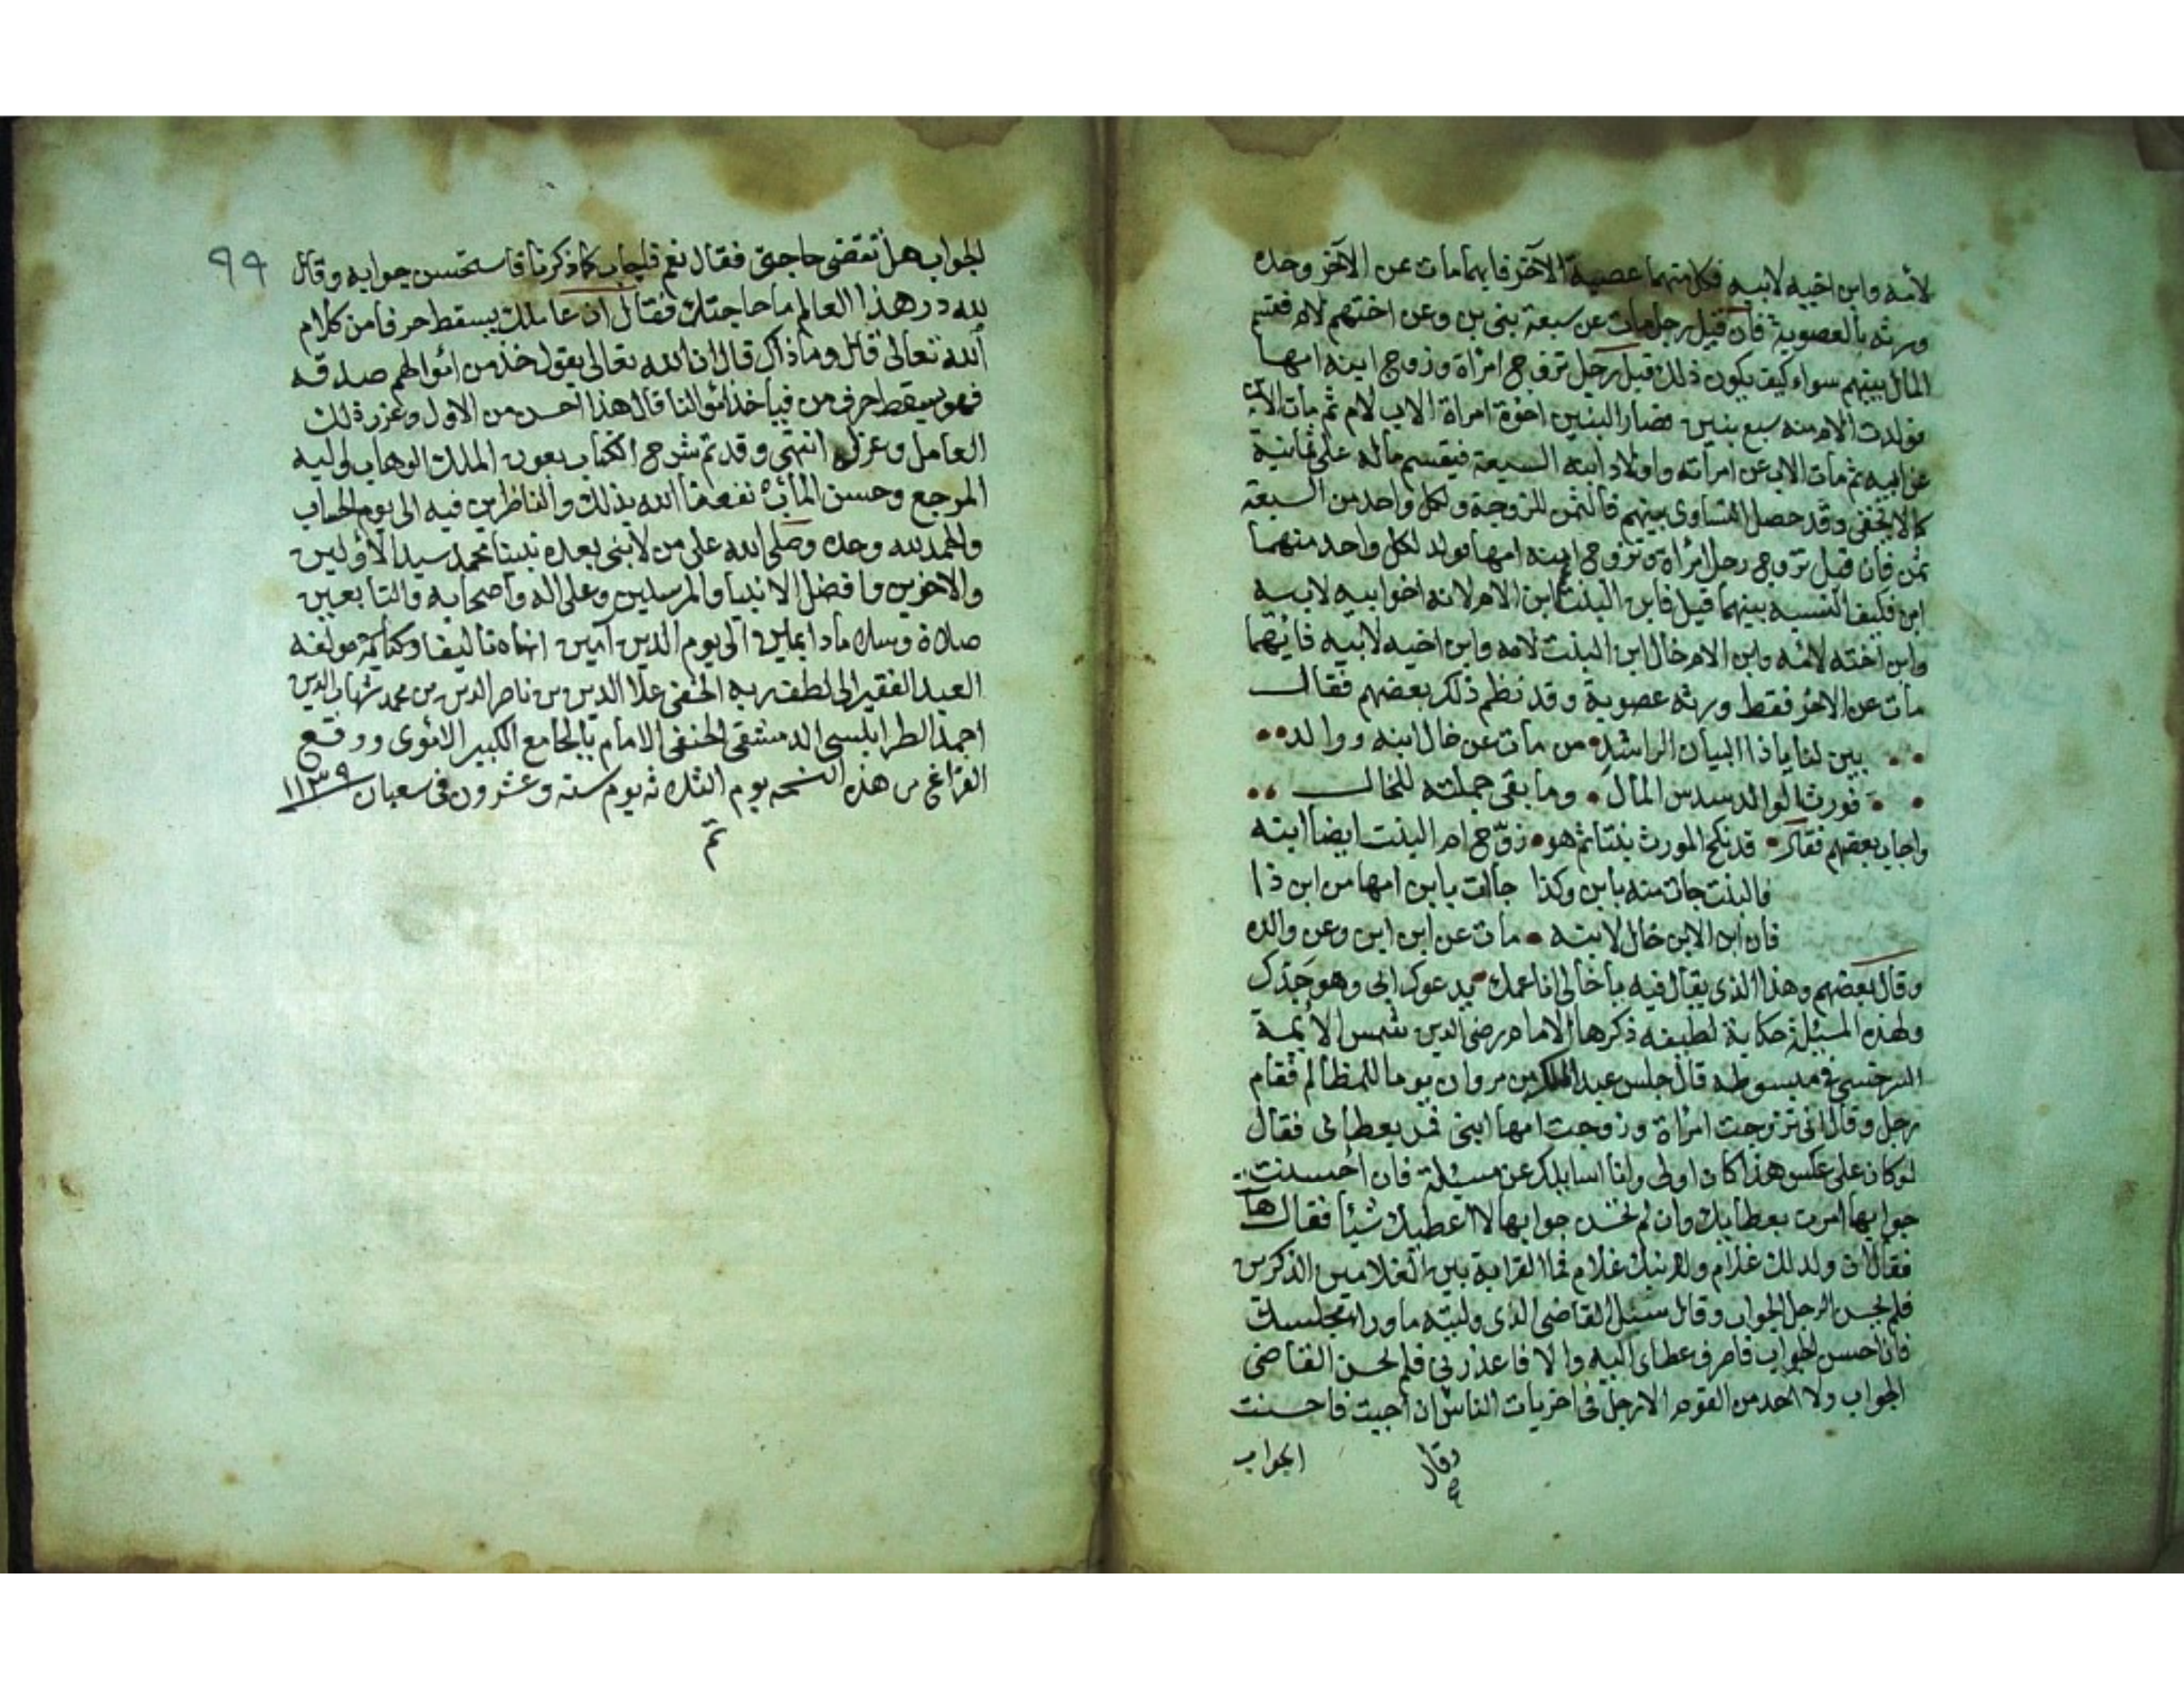 لأمه وابن اخيه لابيه فكل منهما عصبة الآخر فايهما مات عن الآخر وحده
ورثه بالعصوبة فان قيل رجل مات عن سبعة بني بن وعن اختهم لام فقسم
المال بينهم سواء كيف يكون ذلك قيل رجل تزوج امراة وزوج ابنه امها
فولدت الام منه سبع بنين فصار البنين اخوة امراة الاب لام ثم مات الابن
عن ابيه ثم مات الاب عن امرأته واولاد ابنه السبعة فيقسم ماله على ثمانية
كما لا يخفى وقد حصل التساوى بينهم فالثمن للزوجة ولكل واحد من السبعة
ثمن فان قيل تزوج رجل امرأة وتزوج ابنه امها فولد لكل واحد منهما
ابن فكيف النسبه بينهما قيل فابن البنت ابن الام لانه اخو ابيه لابيه
وابن اخته لامه وابن الام خال ابن البنت لامه وابن اخيه لابيه فايهما
مات عن الاخر فقط ورثه عصوبة وقد نظم ذلك بعضهم فقال
بين لنا ياذا البيان الراشد من مات عن خال ابنه ووالد
فورث الوالد سدس المال وما بقى جملته للخال
واجاب بعضهم فقال قد نكح المورث بنتا ثم هو زوّج ام البنت ايضا ابنه
فالبنت جات منه بابن وكذا جاات بابن امها من ابن ذا
فان ابن الابن خال لابنه مات عن ابن ابن وعن والده
وقال بعضهم وهذا الذى يقال فيه يا خالى انا عمك يدعوك ابى وهو جدك
ولهذه المسئلة حكاية لطيفه ذكرها الامام رضى الدين شمس الأيمة
السرخسى فى مبسوطه قال جلس عبد الملك بن مروان يوما للمظالم فقام
رجل وقال انى تزوجت امرأة وزوجت امها ابنى فمر بعطائى فقال
لو كان على عكس هذا كان اولى وانا اسايلك عن مسيلة فان احسنت
جوابها امرت بعطايك وان لم تحسن جوابها لا اعطيك شيئا فقال هات
فقال ان ولد لك غلام ولابنك غلام فما القرابة بين الغلامين الذكرين
فلم يحسن الرجل الجواب وقال سئل القاضى الذى وليته ما وراء مجلسك
فان احسن الجواب فاصرف عطاى اليه والا فاعذرنى فلم يحسن القاضى
الجواب ولا احد من القوم الا رجل فى اخريات الناس ان اجبت فاحسنت
وقال
الجواب
٩٩
الجواب هل تقضى حاجتى فقال نعم فاجاب كما ذكرنا فاستحسن جوابه وقال
لله در هذا العالم ما حاجتك فقال ان عاملك يسقط حرفا من كلام
الله تعالى قال وما ذاك قال ان الله تعالى يقول خذ من اموالهم صدقه
فهو يسقط حرف من فياخذ اموالنا قال هذا احسن من الاول وعزر ذلك
العامل وعزله انتهى وقد تم شرح الكتاب بعون الملك الوهاب واليه
المرجع وحسن المآب نفعنا الله بذلك والناظرين فيه الى يوم الحساب
والحمد لله وحده وصلى الله على من لا نبى بعده نبينا محمد سيد الأولين
والاخرين وافضل الانبيا والمرسلين وعلى اله واصحابه والتابعين
صلاة وسلاما دايمين الى يوم الدين آمين انهاه تاليفا وكتابة مولفه
العبد الفقير الى لطف ربه الخفى علا الدين بن ناصر الدين بن محمد شهاب الدين
احمد الطرابلسى الدمشقى الحنفى الامام بالجامع الكبير الاموى ووقع
الفراغ من هذه النسخه يوم الثلاثه يوم سته وعشرون فى شعبان ١١٣٩
تم